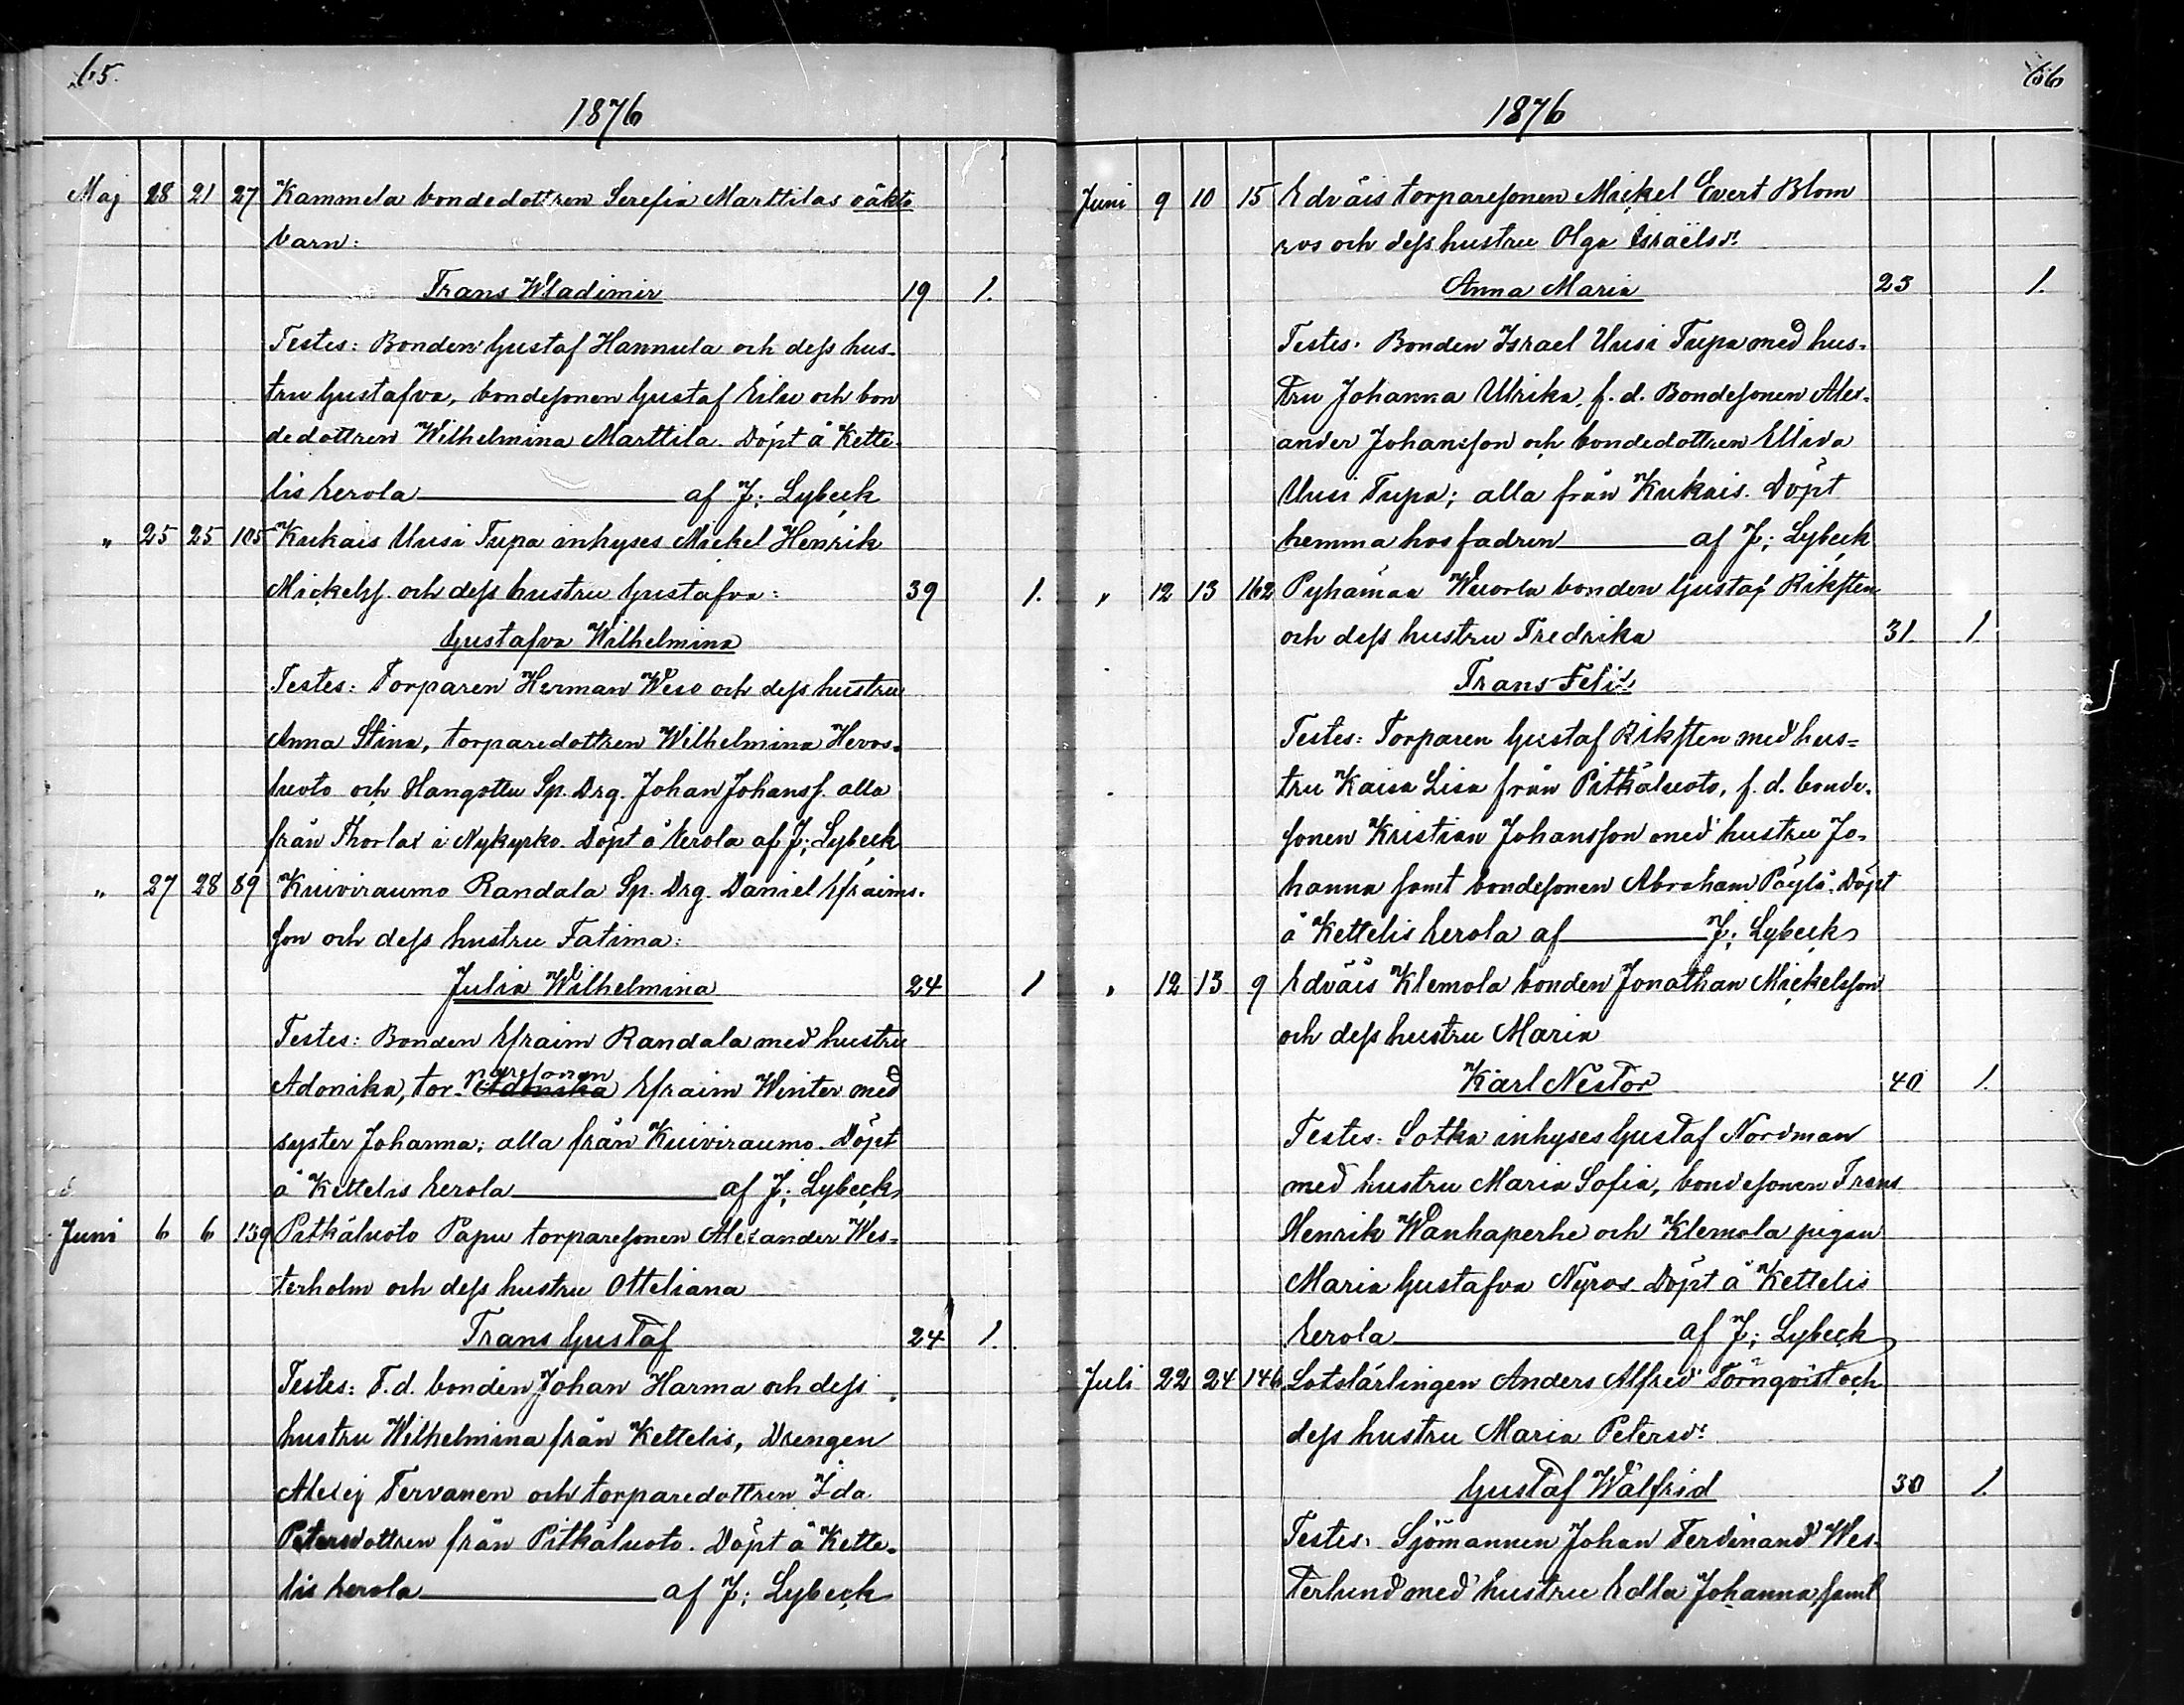 65.
1876
Maj 28 21 27 Kammela bondedottren Serefia Marttilas oäkta
barn:
Frans Wladimir 19 1.
Testes: Bonden Gustaf Hannula och dess hus-
tru Gustafva, bondesonen Gustaf Eilu och bon
dedottren Wilhelmina Marttila. Döpt å Kette-
lis Eerola af J; Lybeck
" 25 25 105 Kukais Uusi Tupa inhyses Mickel Henrik
Mickelss. och dess hustru Gustafva: 39 1.
Gustafva Wilhelmina
Testes: Torparen Herman Weso och dess hustru
Anna Stina, torparedottren Wilhelmina Hevos-
luoto och Hangottu Sp. Drg. Johan Johanss. alla
från Thorlax i Nykyrko. Döpt å Eerola af J; Lybeck
" 27 28 89 Kuiviraumo Randala Sp. Drg. Daniel Efraims-
son och dess hustru Fatima:
Julia Wilhelmina 24 1
Testes: Bonden Efraim Randala med hustru
Adonika, tor- paresonen Adonika Efraim Winter med
syster Johanna; alla från Kuiviraumo. Döpt
å Kettelis Eerola af J; Lybeck
Juni 6 6 139 Pitkäluoto Papu torparesonen Alexander Wes-
terholm och dess hustru Otteliana
Frans Gustaf 24 1.
Testes: F.d. bonden Johan Harma och dess
hustru Wilhelmina från Kettelis, Drengen
Alexej Tervanen och torparedottren Ida
Petersdottren från Pitkäluoto. Döpt å Kette-
lis Eerola af J; Lybeck
66
1876
Juni 9 10 15 Edväis torparesonen Mickel Evert Blom
ros och dess hustru Olga Israëlsdr.
Anna Maria 23 1.
Testes. Bonden Israel Uusi Tupa med hus-
tru Johanna Ulrika, f. d. Bondesonen Alex-
ander Johansson och bondedottren Ellida
Uusi Tupa; alla från Kukais. Döpt
hemma hos fadren af J; Lybeck
" 12 13 162 Pyhämaa Wuorla bonden Gustaf Riksten
och dess hustru Fredrika 31. 1.
Frans Felix
Testes: Torparen Gustaf Riksten med hus-
tru Kaisa Lisa från Pitkäluoto, f. d. bonde-
sonen Kristian Johansson med hustru Jo-
hanna samt bondesonen Abraham Päylä. Döpt
å Kettelis Eerola af J; Lybeck
" 12 13 9 Edväis Klemola bonden Jonathan Mickelsson
och dess hustru Maria
Karl Nestor 40 1.
Testes: Sotka inhyses Gustaf Nordman
med hustru Maria Sofia, bondesonen Frans
Henrik Wanhaperhe och Klemola pigan
Maria Gustafva Nyros. Döpt å Kettelis
Eerola af J; Lybeck
Juli 22 24 146 Lotslärlingen Anders Alfred Törnqvist och
dess hustru Maria Petersdr.
Gustaf Walfrid 30 1.
Testes: Sjömannen Johan Ferdinand Wes-
terlund med hustru Edla Johanna, samt